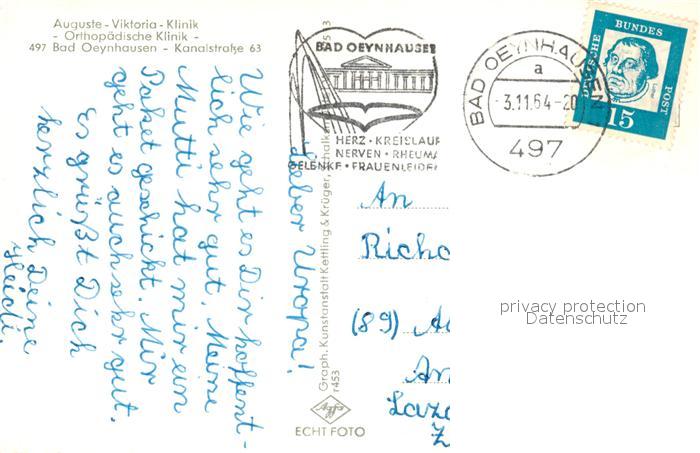 Auguste - Viktoria - Klinik
- Orthopädische Klinik -
497 Bad Oeynhausen - Kanalstraße 63
BAD OEYNHAUSEN
HERZ • KREISLAUF
NERVEN • RHEUMA
GELENKE • FRAUENLEIDEN
BAD OEYNHAUSEN
a
- 3.11.64 - 20
497
DEUTSCHE BUNDESPOST
Luther
15
Lieber Uropa!
Wie geht es Dir hoffent-
lich sehr gut. Meine
Mutti hat mir ein
Paket geschickt. Mir
geht es auch sehr gut.
Es grüßt Dich
herzlich Deine
Heidi.
Graph. Kunstanstalt Kettling & Krüger,
r453
Agfa
ECHT FOTO
An
Richa
(89)
An
Laza
Z
privacy protection
Datenschutz